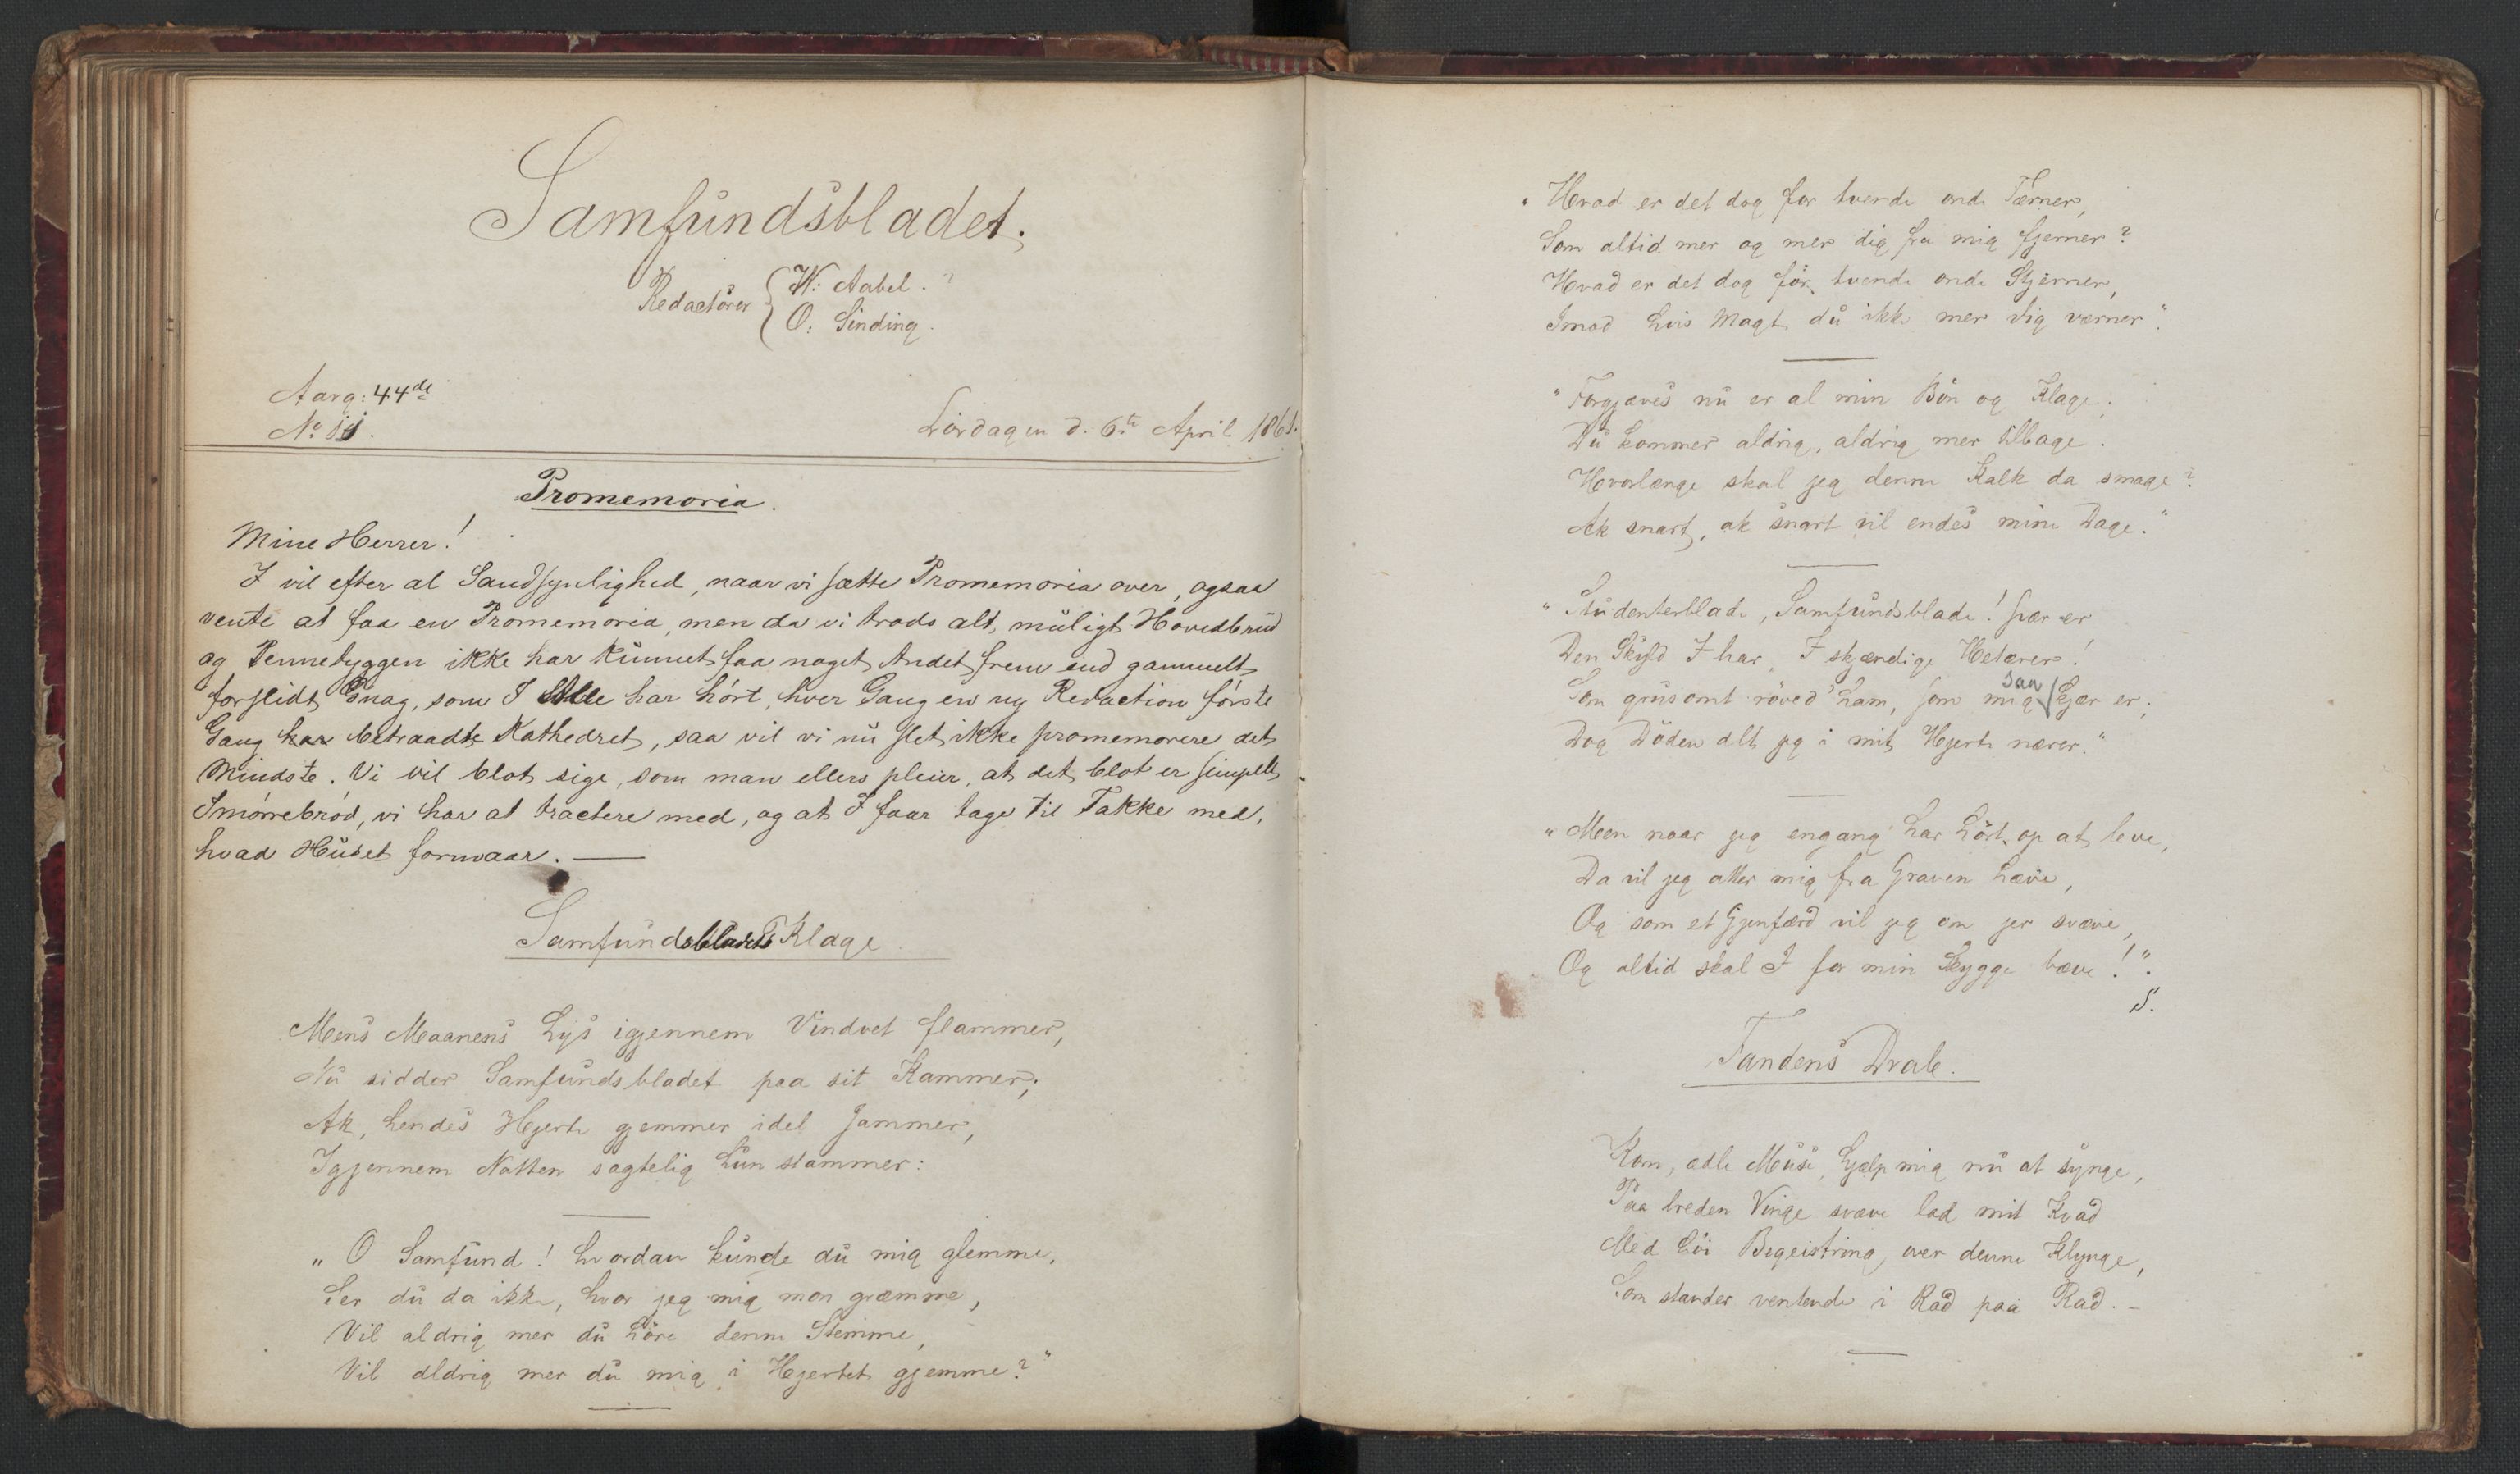 Samfundsbladet.
Redactører { W: Aabel.
O: Sinding.
Aarg: 44de
No 11.
Lørdagen d. 6te April 1861.
Promemoria.
Mine Herrer!
I vil efter al Sandsynlighed, naar vi sætte Promemoria over, ogsaa
vente at faa en Promemoria, men da vi trods alt muligt Hovedbrud
og Pennetyggen ikke har kunnet faa noget Andet frem end gammelt
forslidt Gnag, som I Alle har hørt, hver Gang en ny Redaction første
Gang har betraadt Kathedret, saa vil vi nu slet ikke promemorere det
Mindste. Vi vil blot sige, som man ellers pleier, at det blot er simpelt
Smørrebrød, vi har at tractere med, og at I faar tage til Takke med,
hvad Huset formaar. —
Samfundsbladets Klage.
Mens Maanens Lys igjennem Vinduet flammer,
Nu sidder Samfundsbladet paa sit Kammer;
Ak, hendes Hjerte gjemmer idel Jammer,
Igjennem Natten sagtelig hun stammer:
"O Samfund! hvordan kunde du mig glemme,
Ser du da ikke, hvor jeg mig mon græmme,
Vil aldrig mer du høre denne Stemme,
Vil aldrig mer du mig i Hjertet gjemme?"
"Hvad er det dog for tvende onde Tærner,
Som altid mer og mer dig fra mig fjerner?
Hvad er det dog for tvende onde Stjerner,
Imod hvis Magt du ikke mer dig værner".
"Forgjæves nu er al min Bøn og Klage;
Du kommer aldrig, aldrig mer tilbage.
Hvorlænge skal jeg denne Kalk da smage?
Ak snart, ak snart vil endes mine Dage."
"Studenterblade, Samfundsblade! svær er
Den Skyld I har, I skjændige Hetærer!
Som grusomt røved' ham, som mig saa kjær er;
Dog Døden alt jeg i mit Hjerte nærer."
"Men naar jeg engang har hørt op at leve,
Da vil jeg atter mig fra Graven hæve,
Og som et Gjenfærd vil jeg om jer svæve,
Og altid skal I for min Skygge bæve!".
S.
Fandens Drab.
Kom, ædle Muse, hjælp mig nu at synge,
Paa breden Vinge svæve lad mit Kvad
Med høi Begeistring over denne Klynge,
Som stander ventende i Rad paa Rad. —